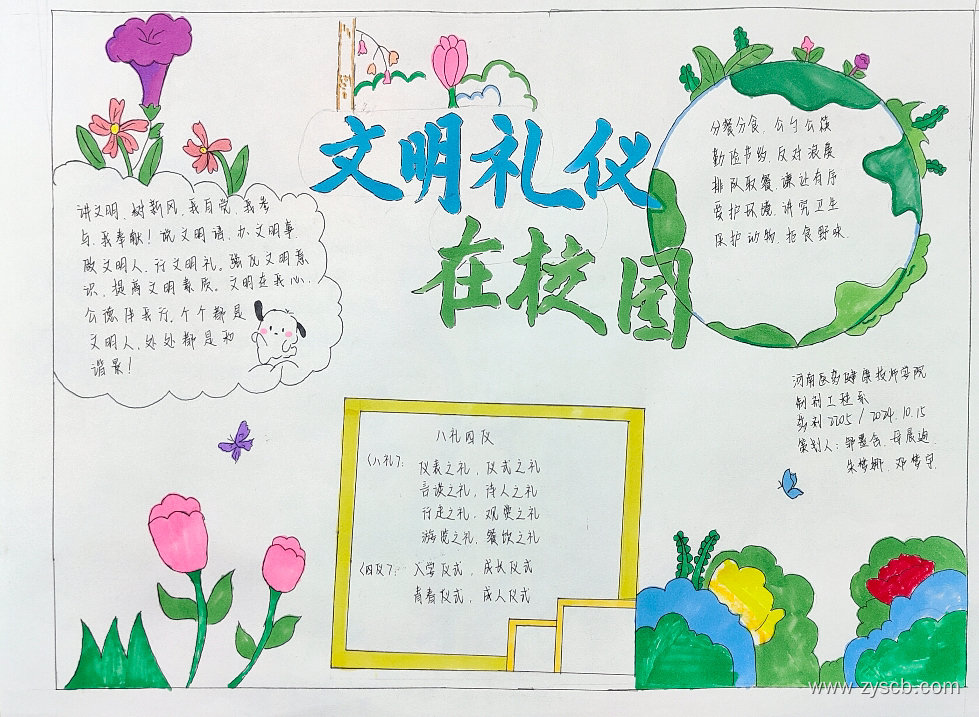 文明礼仪
在校园
讲文明、树新风、我自觉、我参
与、我奉献！说文明语、办文明事、
做文明人、行文明礼。强化文明意
识、提高文明素质。文明在我心、
公德伴我行、个个都是
文明人、处处都是和
谐景！
分餐分食、公勺公筷
勤俭节约、反对浪费
排队取餐、谦让有序
爱护环境、讲究卫生
保护动物、拒食野味.
八礼四仪
《八礼》：仪表之礼、仪式之礼
言谈之礼、待人之礼
行走之礼、观赏之礼
游览之礼、餐饮之礼
《四仪》：入学仪式、成长仪式
青春仪式、成人仪式
河南医药健康技师学院
制剂工程系
药剂2205 / 2024.10.15
策划人：
www.zyscb.com